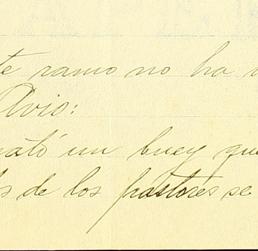 te ramo no ha
Avio:
mató un buey que
de los pastores se